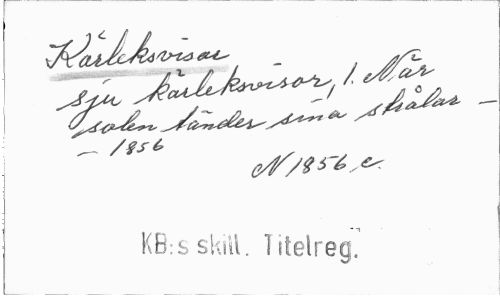 Kärleksvisor
sju kärleksvisor, 1. När
solen tänder sina strålar –
– 1856
N 1856 c.
KB:s skill. Titelreg.